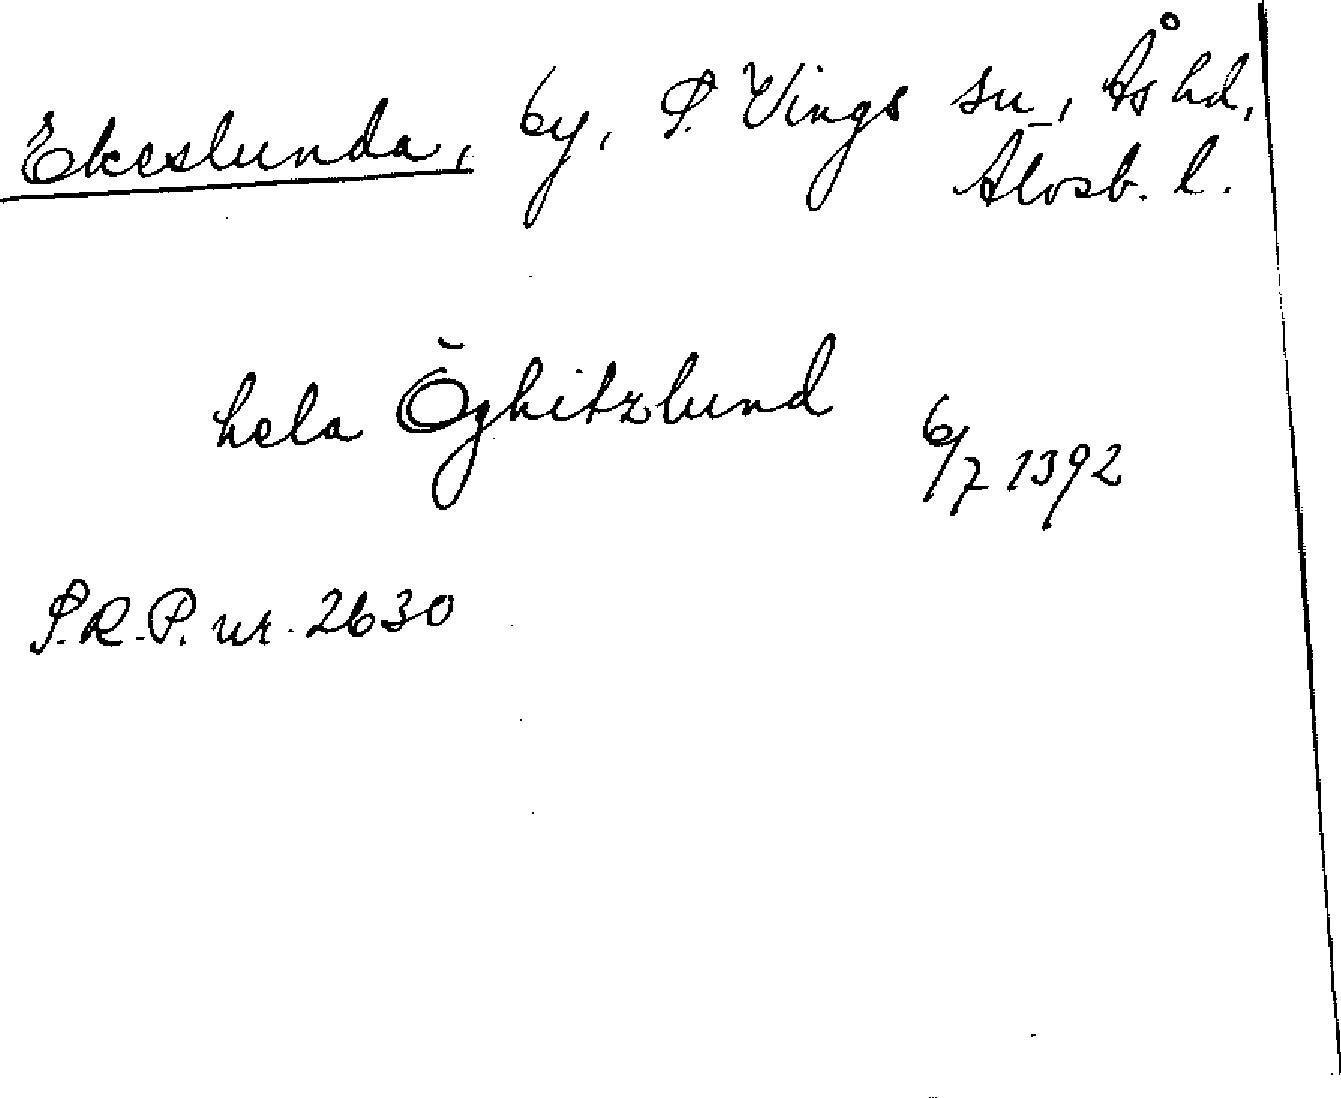 Ekeslunda, by, S. Vings sn, Ås hd,
Älvsb. l.
hela Öghitzlund 6/7 1392
S.R.P. nr. 2630